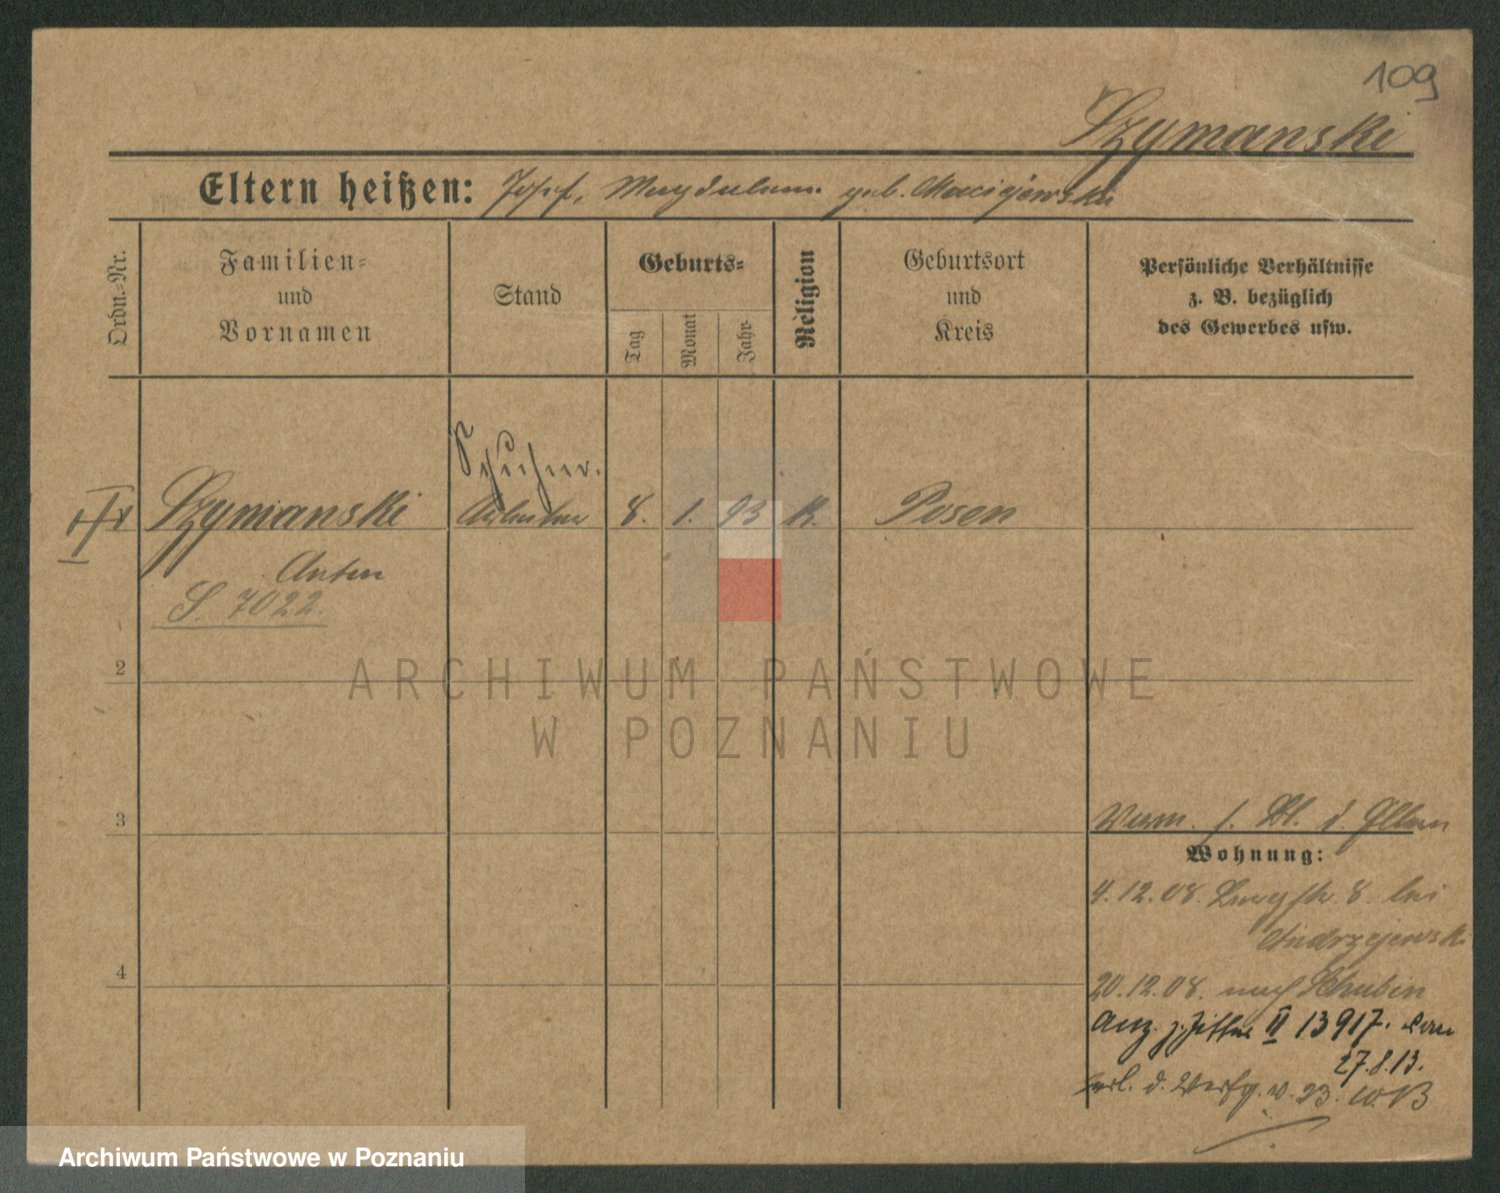 109
Szymanski
Eltern heißen: Josef, Magdalena geb. Maciejewska
Ordn.-Nr.
Familien-
und
Vornamen
Stand
Geburts-
Tag
Monat
Jahr
Religion
Geburtsort
und
Kreis
Persönliche Verhältnisse
z. B. bezüglich
des Gewerbes usw.
Szymanski
Arbeiter
8. 1. 93 K. Posen
Anton
S. 7022.
2
ARCHIWUM PAŃSTWOWE
W POZNANIU
3
d. Eltern
Wohnung:
4.12.08. 8 bei
Andrzejewski
4
20.12.08. nach Schubin
II 13917.
27.8.13.
erl. d. Verfg. v. 23. 10. 13
Archiwum Państwowe w Poznaniu